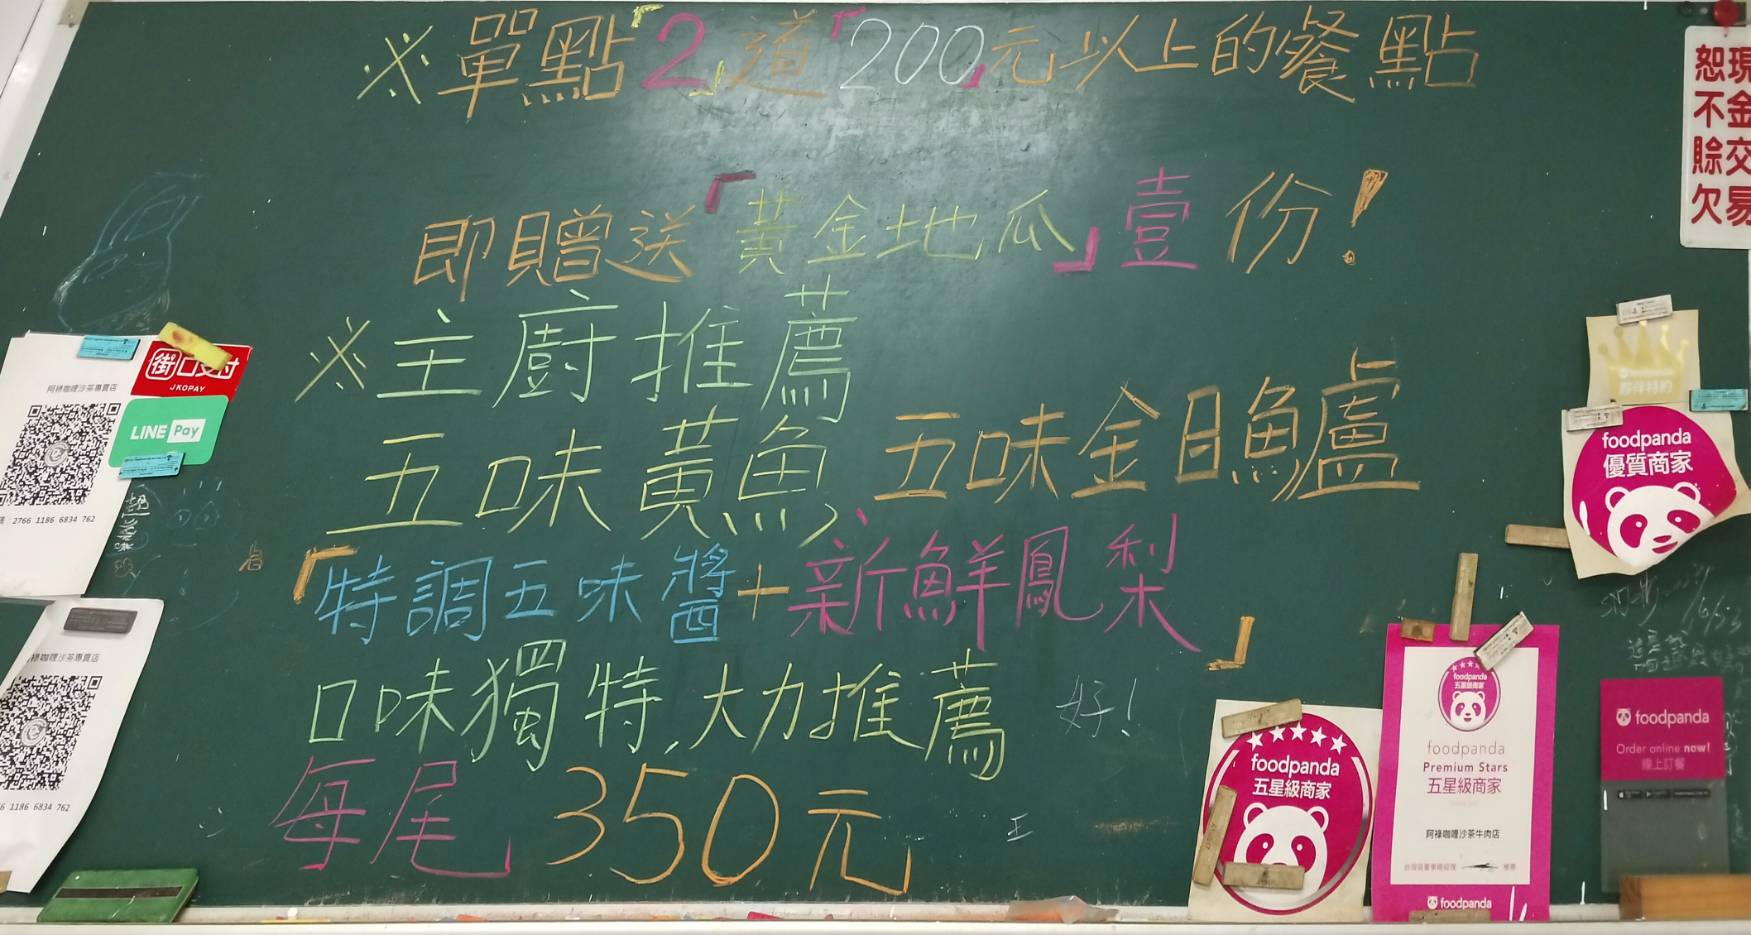 ※單點「2」道「200」元以上的餐點
即贈送「黃金地瓜」壹份!
※主廚推薦
五味黃魚、五味金目鱸
「特調五味醬+新鮮鳳梨」
口味獨特,大力推薦
好!
每尾350元
恕不賒欠
現金交易
阿祿咖哩沙茶專賣店
街口支付
JKOPAY
LINE Pay
2766 1186 6834 762
祿咖哩沙茶專賣店
6 1186 6834 762
foodpanda
夥伴特約
foodpanda
優質商家
foodpanda
五星級商家
foodpanda
五星級商家
foodpanda
Premium Stars
五星級商家
阿祿咖哩沙茶牛肉店
foodpanda
foodpanda
Order online now!
線上訂餐